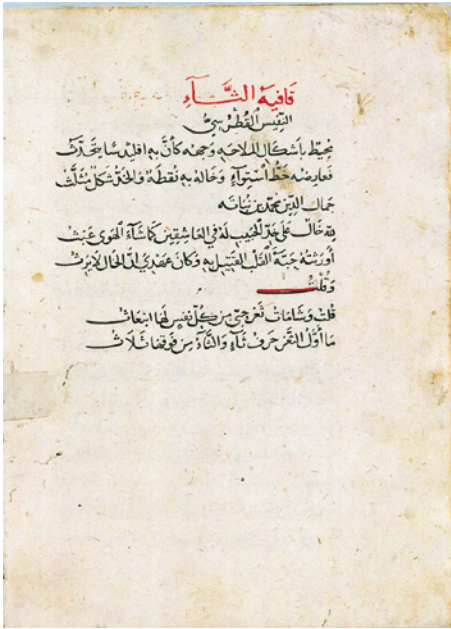 قافية الثَّاءِ
النفيس القُطْرُسِيُّ
مُحِيْطٌ باَشكَالِ المَلاحَةِ وَجهُه كأنَّ بهِ اقليدسًا يَتَحَدَّثُ
فَعارِضه خَطُّ اسْتِواءٍ وَخالهُ بهِ نُقطَةٌ وَالخَدُّ شكلٌ مُثَلَّثُ
جمال الدين محمّد بن نُباته
للهِ خَالٌ عَلَى خَدِّ الحَبِيبِ لَهُ في العَاشِقِينَ كَمَا شَآءَ الهَوى عَبَثُ
أورَثتُه حَبَّةَ القَلْبِ القَتِيلِ بهِ وَكانَ عَهْدِي انّ الخال لا يَرِثُ
وَقُلْتُ
قلتُ وَشامَاتُ ثَغرِ حِبّي مِن كُلِّ نَفسٍ لَهَا انبعاثُ
مَا أوَّلُ الثَغْرِ حَرفُ ثَآءٍ وَالثَّآءُ مِن فَوقِهَا ثَلَاثُ